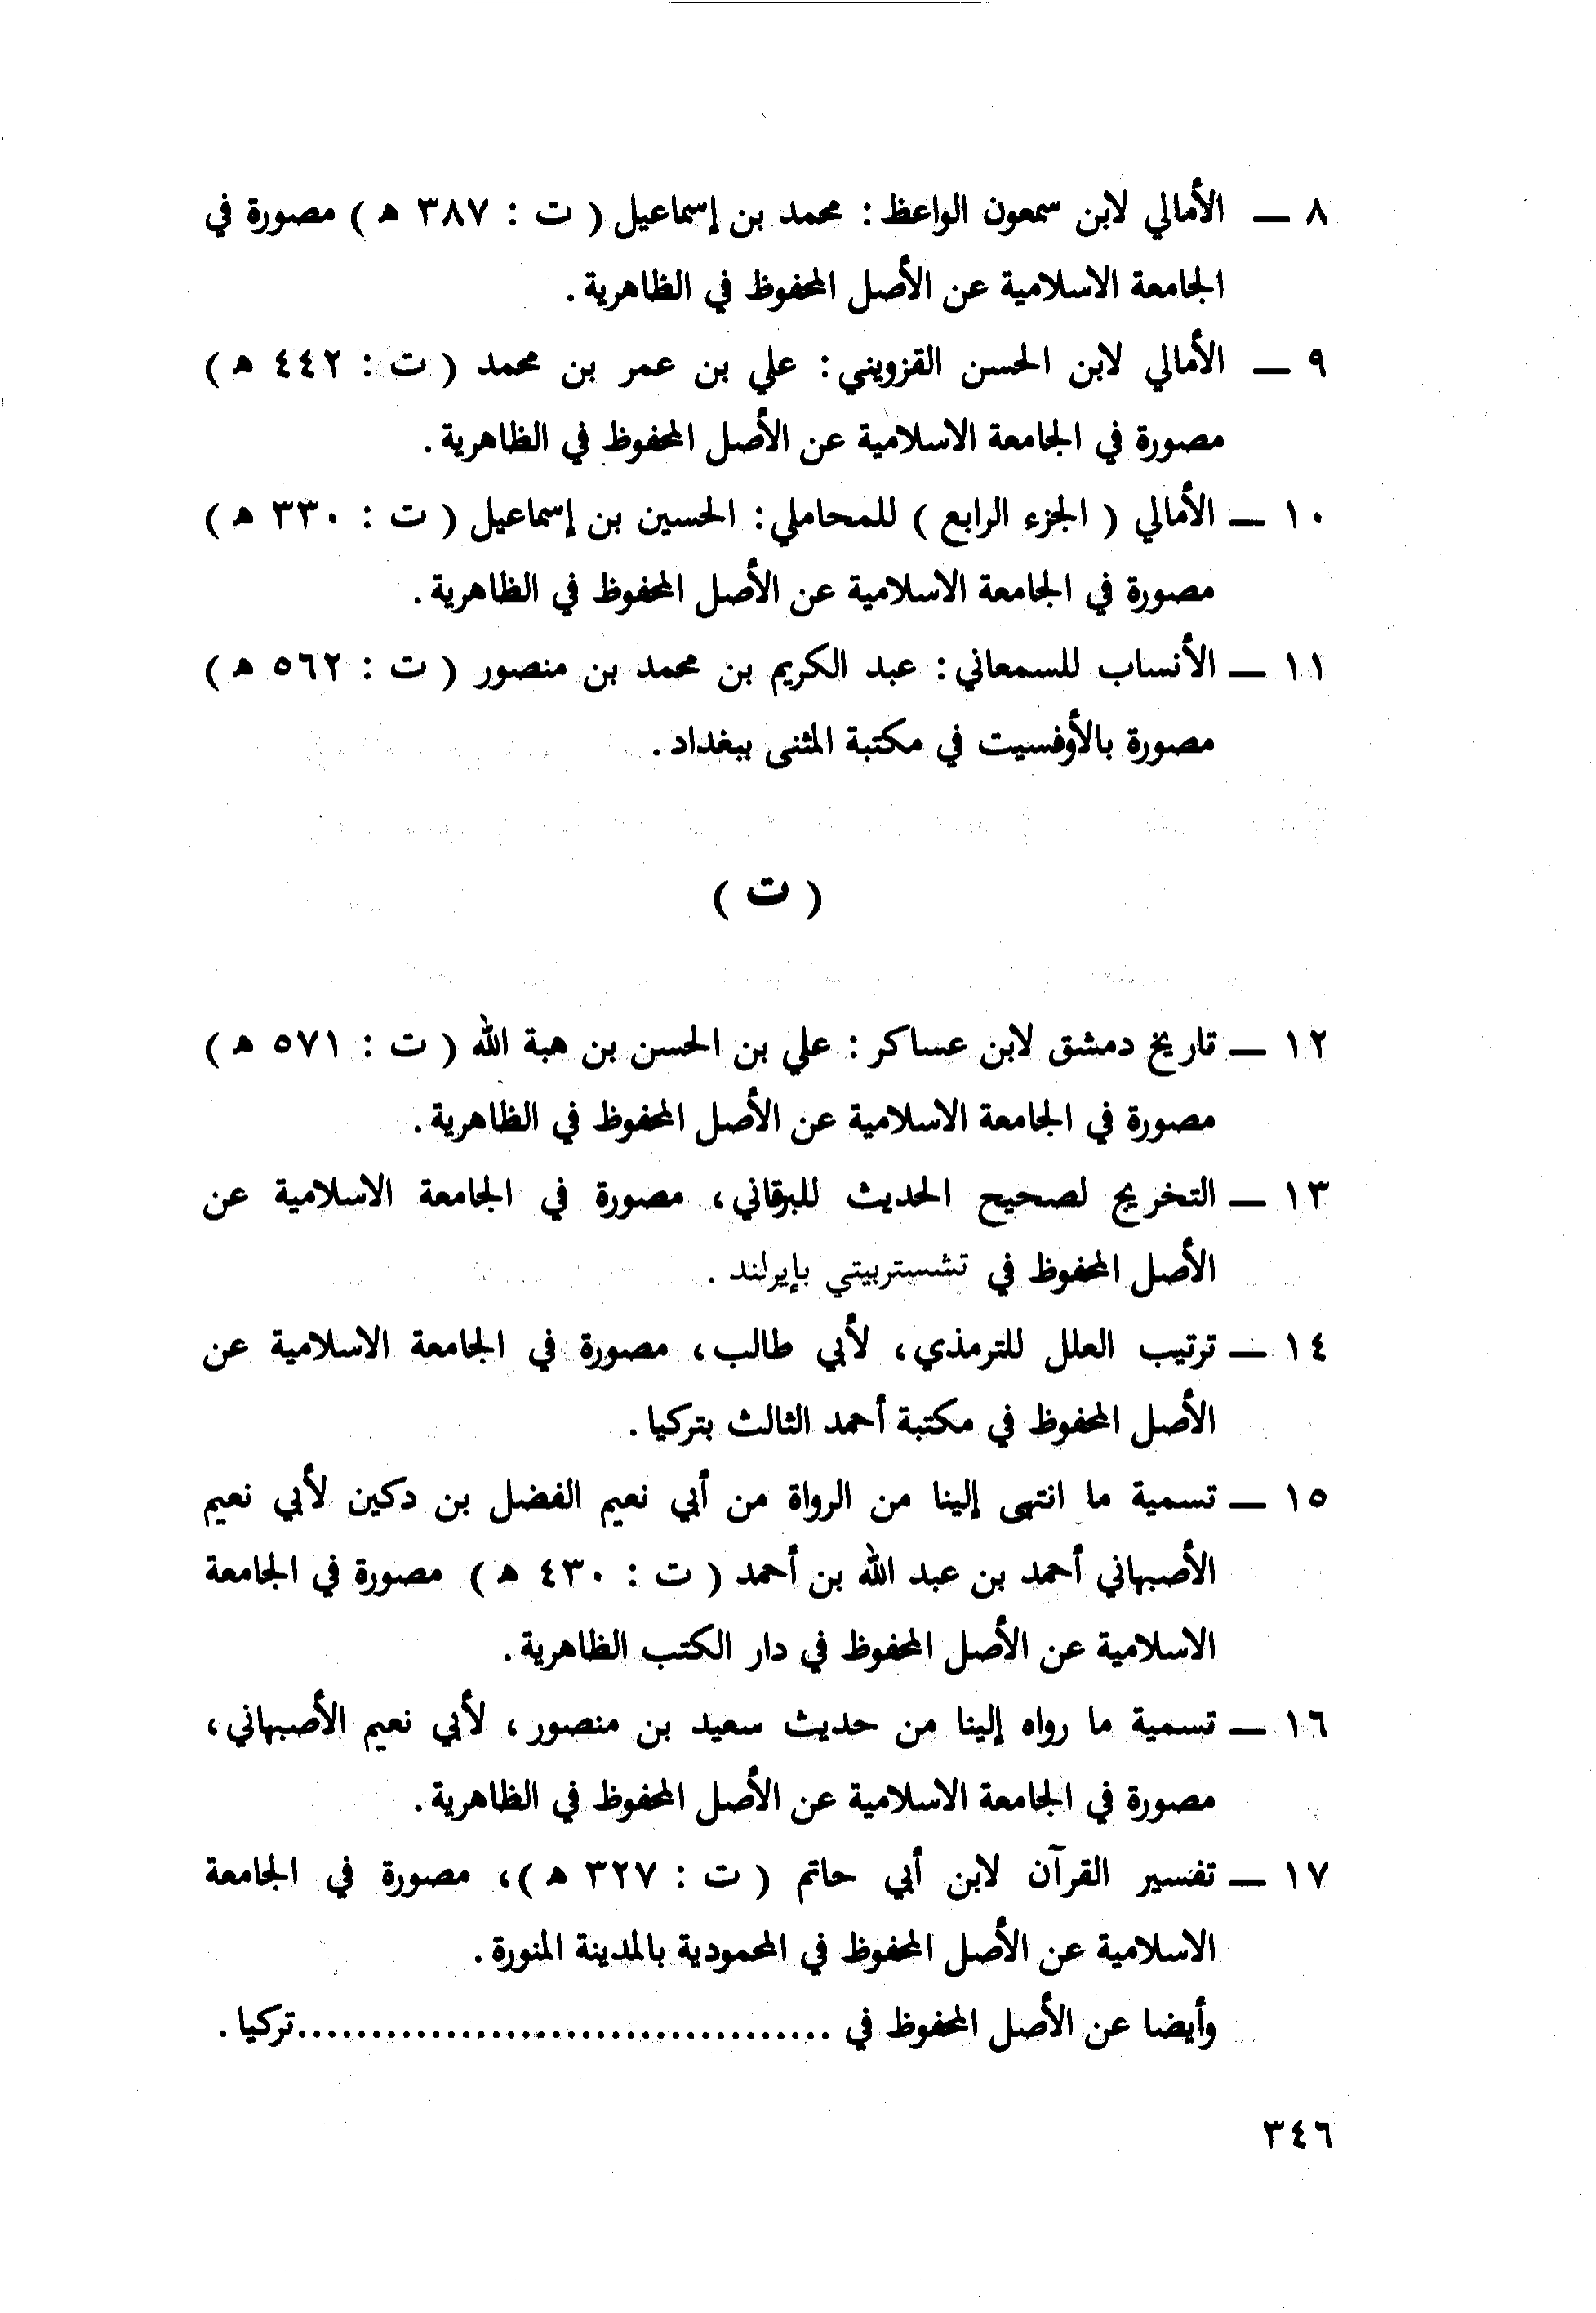 ٨ ــ الأمالي لابن سمعون الواعظ : محمد بن إسماعيل ( ت : ٣٨٧ ه ) مصورة في
الجامعة الاسلامية عن الأصل المحفوظ في الظاهرية .
٩ ــ الأمالي لابن الحسن القزويني : علي بن عمر بن محمد ( ت : ٤٤٢ ه )
مصورة في الجامعة الاسلامية عن الأصل المحفوظ في الظاهرية .
١٠ ــ الأمالي ( الجزء الرابع ) للمحاملي : الحسين بن إسماعيل ( ت : ٣٣٠ ه )
مصورة في الجامعة الاسلامية عن الأصل المحفوظ في الظاهرية .
١١ ــ الأنساب للسمعاني : عبد الكريم بن محمد بن منصور ( ت : ٥٦٢ ه )
مصورة بالأوفسيت في مكتبة المثنى ببغداد .
( ت )
١٢ ــ تاريخ دمشق لابن عساكر : علي بن الحسن بن هبة الله ( ت : ٥٧١ ه )
مصورة في الجامعة الاسلامية عن الأصل المحفوظ في الظاهرية .
١٣ ــ التخريج لصحيح الحديث للبرقاني ، مصورة في الجامعة الاسلامية عن
الأصل المحفوظ في تشستربيتي بإيرلند .
١٤ ــ ترتيب العلل للترمذي ، لأبي طالب ، مصورة في الجامعة الاسلامية عن
الأصل المحفوظ في مكتبة أحمد الثالث بتركيا .
١٥ ــ تسمية ما انتهى إلينا من الرواة من أبي نعيم الفضل بن دكين لأبي نعيم
الأصبهاني أحمد بن عبد الله بن أحمد ( ت : ٤٣٠ ه ) مصورة في الجامعة
الاسلامية عن الأصل المحفوظ في دار الكتب الظاهرية .
١٦ ــ تسمية ما رواه إلينا من حديث سعيد بن منصور ، لأبي نعيم الأصبهاني ،
مصورة في الجامعة الاسلامية عن الأصل المحفوظ في الظاهرية .
١٧ ــ تفسير القرآن لابن أبي حاتم ( ت : ٣٢٧ ه ) ، مصورة في الجامعة
الاسلامية عن الأصل المحفوظ في المحمودية بالمدينة المنورة .
وأيضا عن الأصل المحفوظ في ....................................تركيا .
٣٤٦